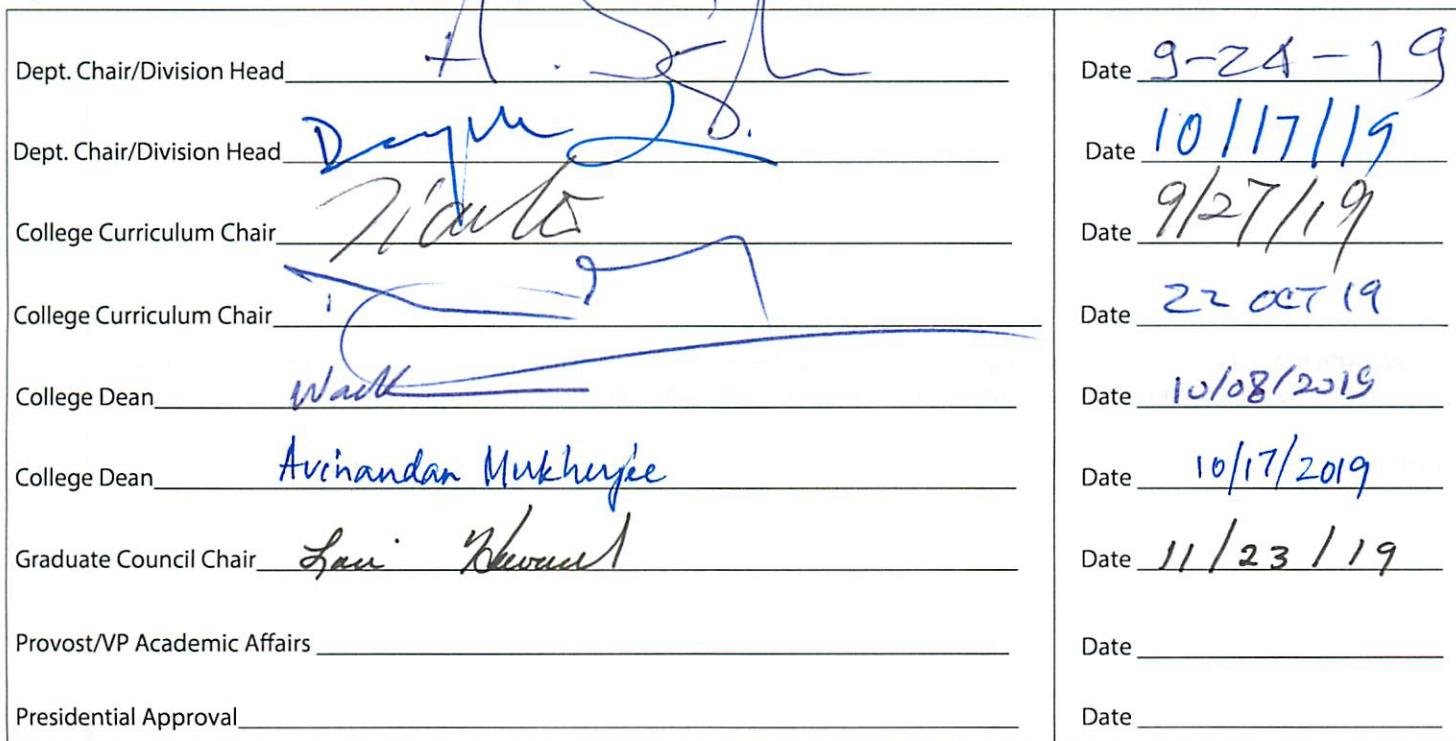 Dept. Chair/Division Head Date 9-24-19
Dept. Chair/Division Head Date 10/17/19
College Curriculum Chair Date 9/27/19
College Curriculum Chair Date 22 OCT 19
College Dean Date 10/08/2019
College Dean Avinandan Mukherjee Date 10/17/2019
Graduate Council Chair Date 11/23/19
Provost/VP Academic Affairs Date
Presidential Approval Date